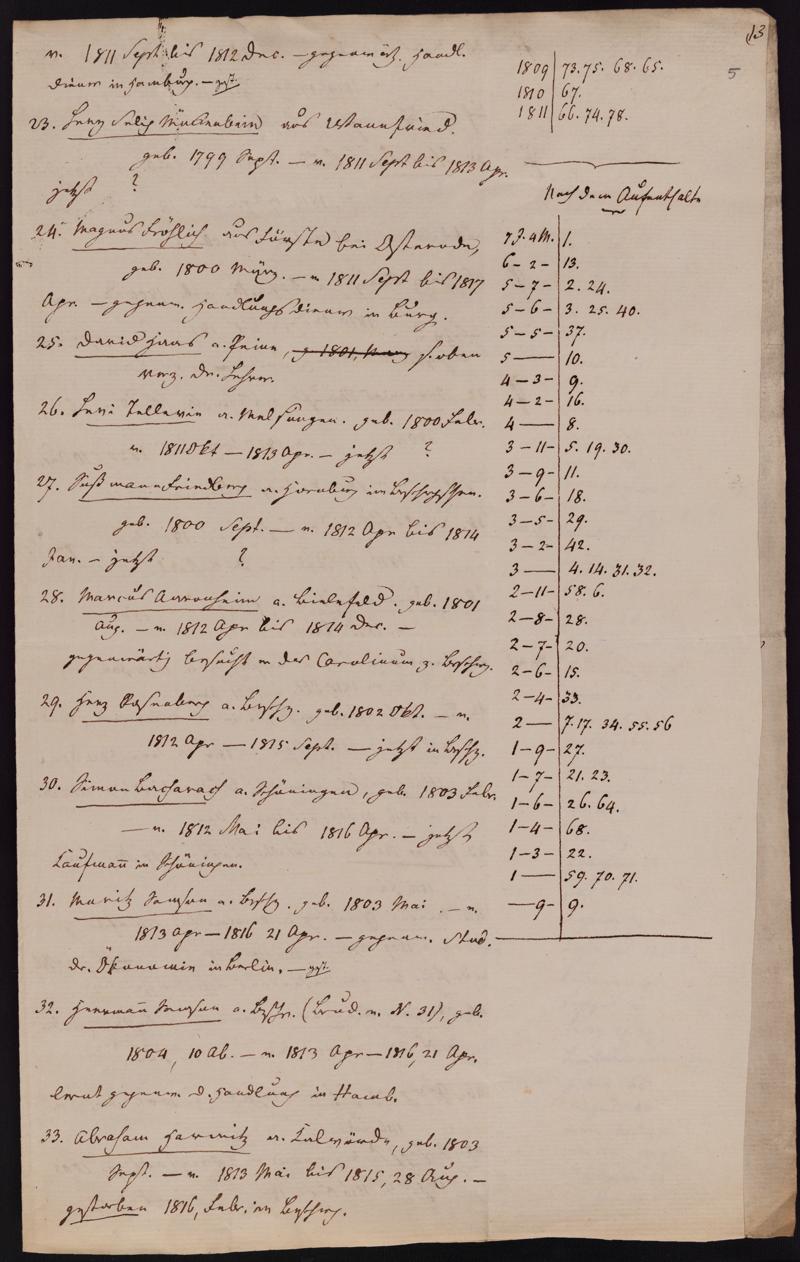 13
5
v. 1811 Sept. bis 1812 Dec. – gegenwärt. Handl.
diener in Hamburg. –
23. Herz Selig aus Wannfried.
geb. 1799 Sept. – v. 1811 Sept bis 1813 Apr.
jetzt ?
24. Magnus Fröhlich aus Förste bei Osterode,
geb. 1800 März. – v. 1811 Sept bis 1817
Apr. – gegenw. Handlungsdiener in Burg.
25. David Haas a. Peine, g. 1801, s. oben
verz. der Lehrer.
26. Levi Tellevin a. Melsungen. geb. 1800 Febr.
v. 1811 Okt – 1813 Apr. – jetzt ?
27. Süßmann Friedberg a. Hornburg im
geb. 1800 Sept. – v. 1812 Apr bis 1814
Jan. – jetzt ?
28. Marcus Aaronheim a. Bielefeld. geb. 1801
Aug. – v. 1812 Apr bis 1814 Dec. –
gegenwärtig besucht er das Carolinum z. Brschw.
29. Herz Rosenberg a. Brschw. geb. 1802 Okt. – v.
1812 Apr – 1815 Sept. – jetzt in Brschw.
30. Simon Bacharach a. Schöningen, geb. 1803 Febr.
– v. 1812 Mai bis 1816 Apr. – jetzt
Kaufmann in Schöningen.
31. Moritz Samson a. Brschw. geb. 1803 Mai – v.
1813 Apr – 1816 21 Apr. – gegenw. Stud.
der Ökonomie in Berlin. –
32. Herrmann Samson a. Brschw. (Brud. v. N. 31), geb.
1804, 10 Ab. – v. 1813 Apr – 1816, 21 Apr.
lernt gegenw. d. Handlung in Hamb.
33. Abraham Horwitz a. Calvörde, geb. 1803
Sept. – v. 1813 Mai bis 1815, 28 Aug. –
gestorben 1816, Febr. in Brschw.
1809 73. 75. 68. 65.
1810 67.
1811 66. 74. 78.
Nach dem Aufenthalte
7 J. 4 M. 1.
6 – 2 – 13.
5 – 7 – 2. 24.
5 – 6 – 3. 25. 40.
5 – 5 – 37.
5 — 10.
4 – 3 – 9.
4 – 2 – 16.
4 — 8.
3 – 11 – 5. 19. 30.
3 – 9 – 11.
3 – 6 – 18.
3 – 5 – 29.
3 – 2 – 42.
3 — 4. 14. 31. 32.
2 – 11 – 58. 6.
2 – 8 – 28.
2 – 7 – 20.
2 – 6 – 15.
2 – 4 – 33.
2 — 7. 17. 34. 55. 56
1 – 9 – 27.
1 – 7 – 21. 23.
1 – 6 – 26. 64.
1 – 4 – 68.
1 – 3 – 22.
1 — 59. 70. 71.
— 9 – 9.